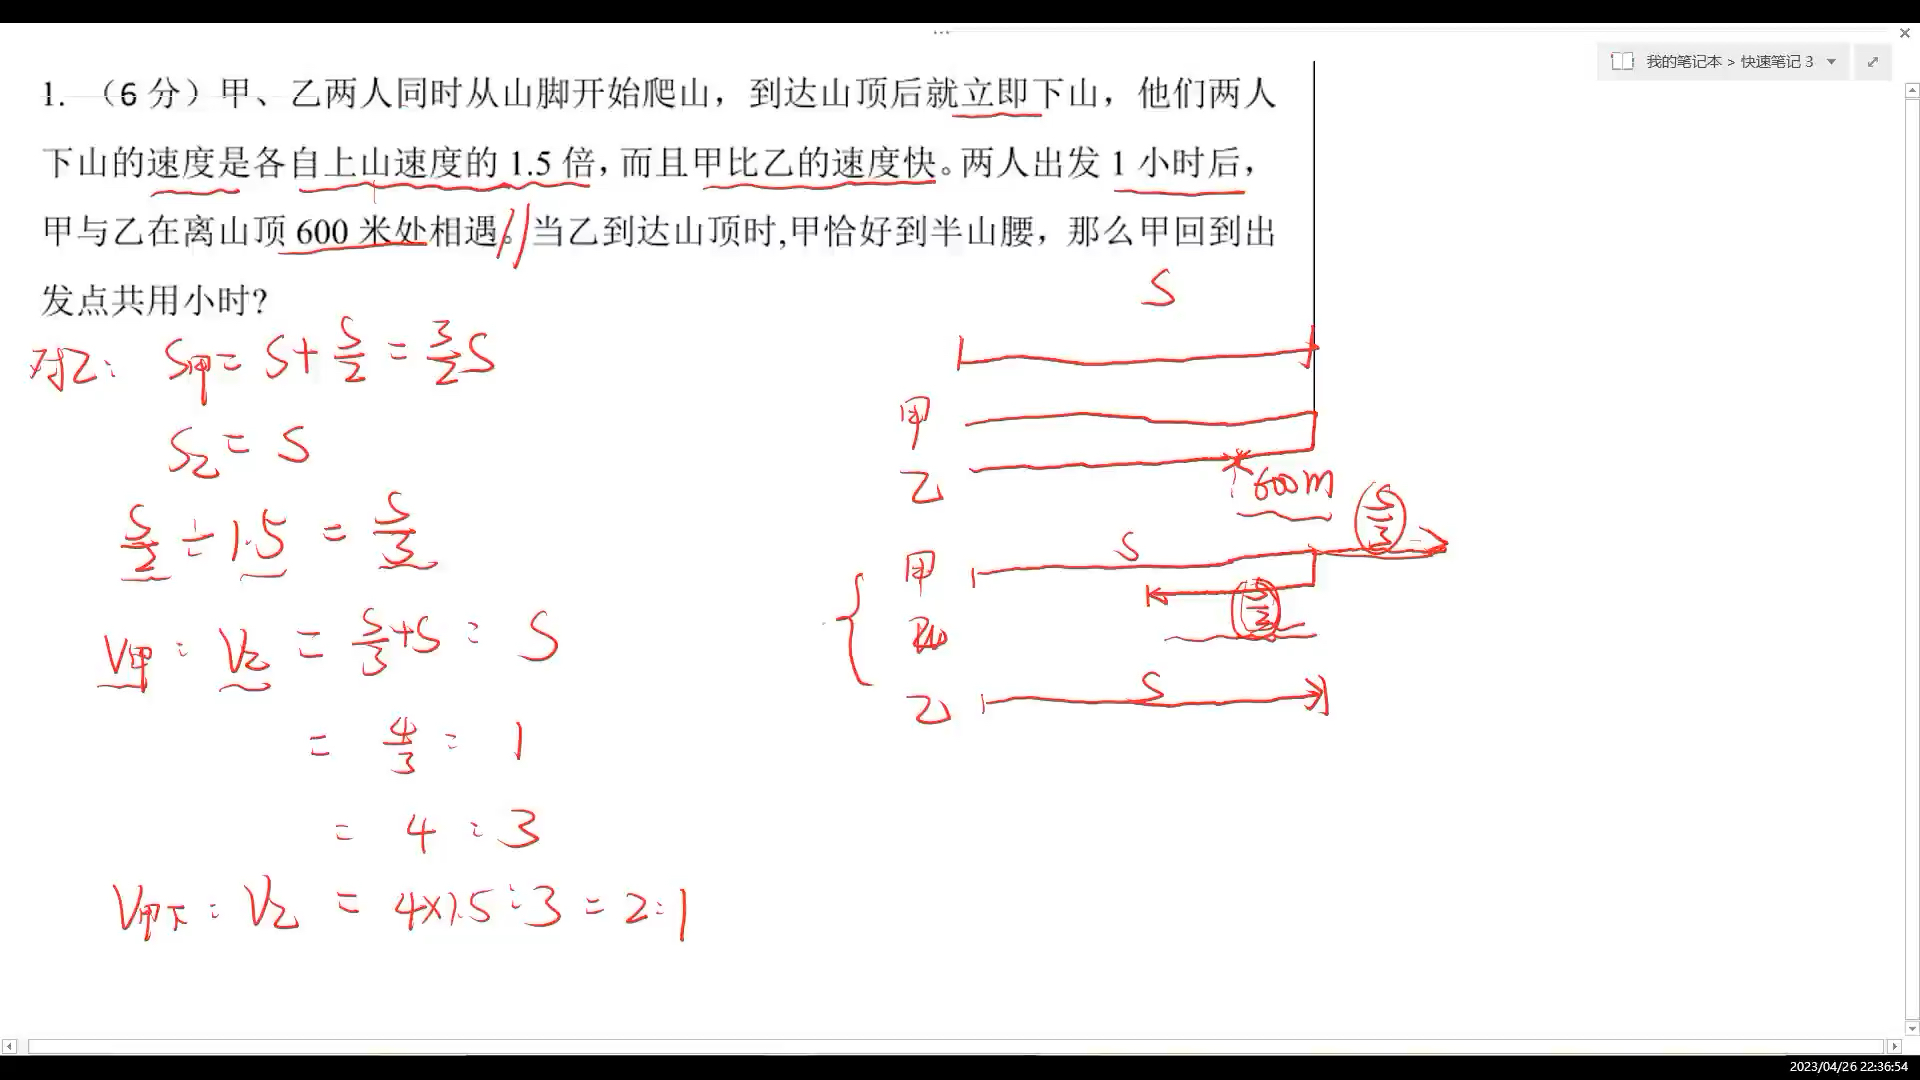 我的笔记本 > 快速笔记 3
1. （6 分）甲、乙两人同时从山脚开始爬山，到达山顶后就立即下山，他们两人
下山的速度是各自上山速度的 1.5 倍，而且甲比乙的速度快。两人出发 1 小时后，
甲与乙在离山顶 600 米处相遇。当乙到达山顶时,甲恰好到半山腰，那么甲回到出
发点共用小时?
S
对乙: S甲 = S + S/2 = 3/2 S
S乙 = S
S/2 ÷ 1.5 = S/3
V甲 : V乙 = S/3 + S : S
= 4/3 : 1
= 4 : 3
V甲下 : V乙 = 4×1.5 : 3 = 2:1
甲
乙
600m
S/3
甲
S
S/3
乙
S
2023/04/26 22:36:54